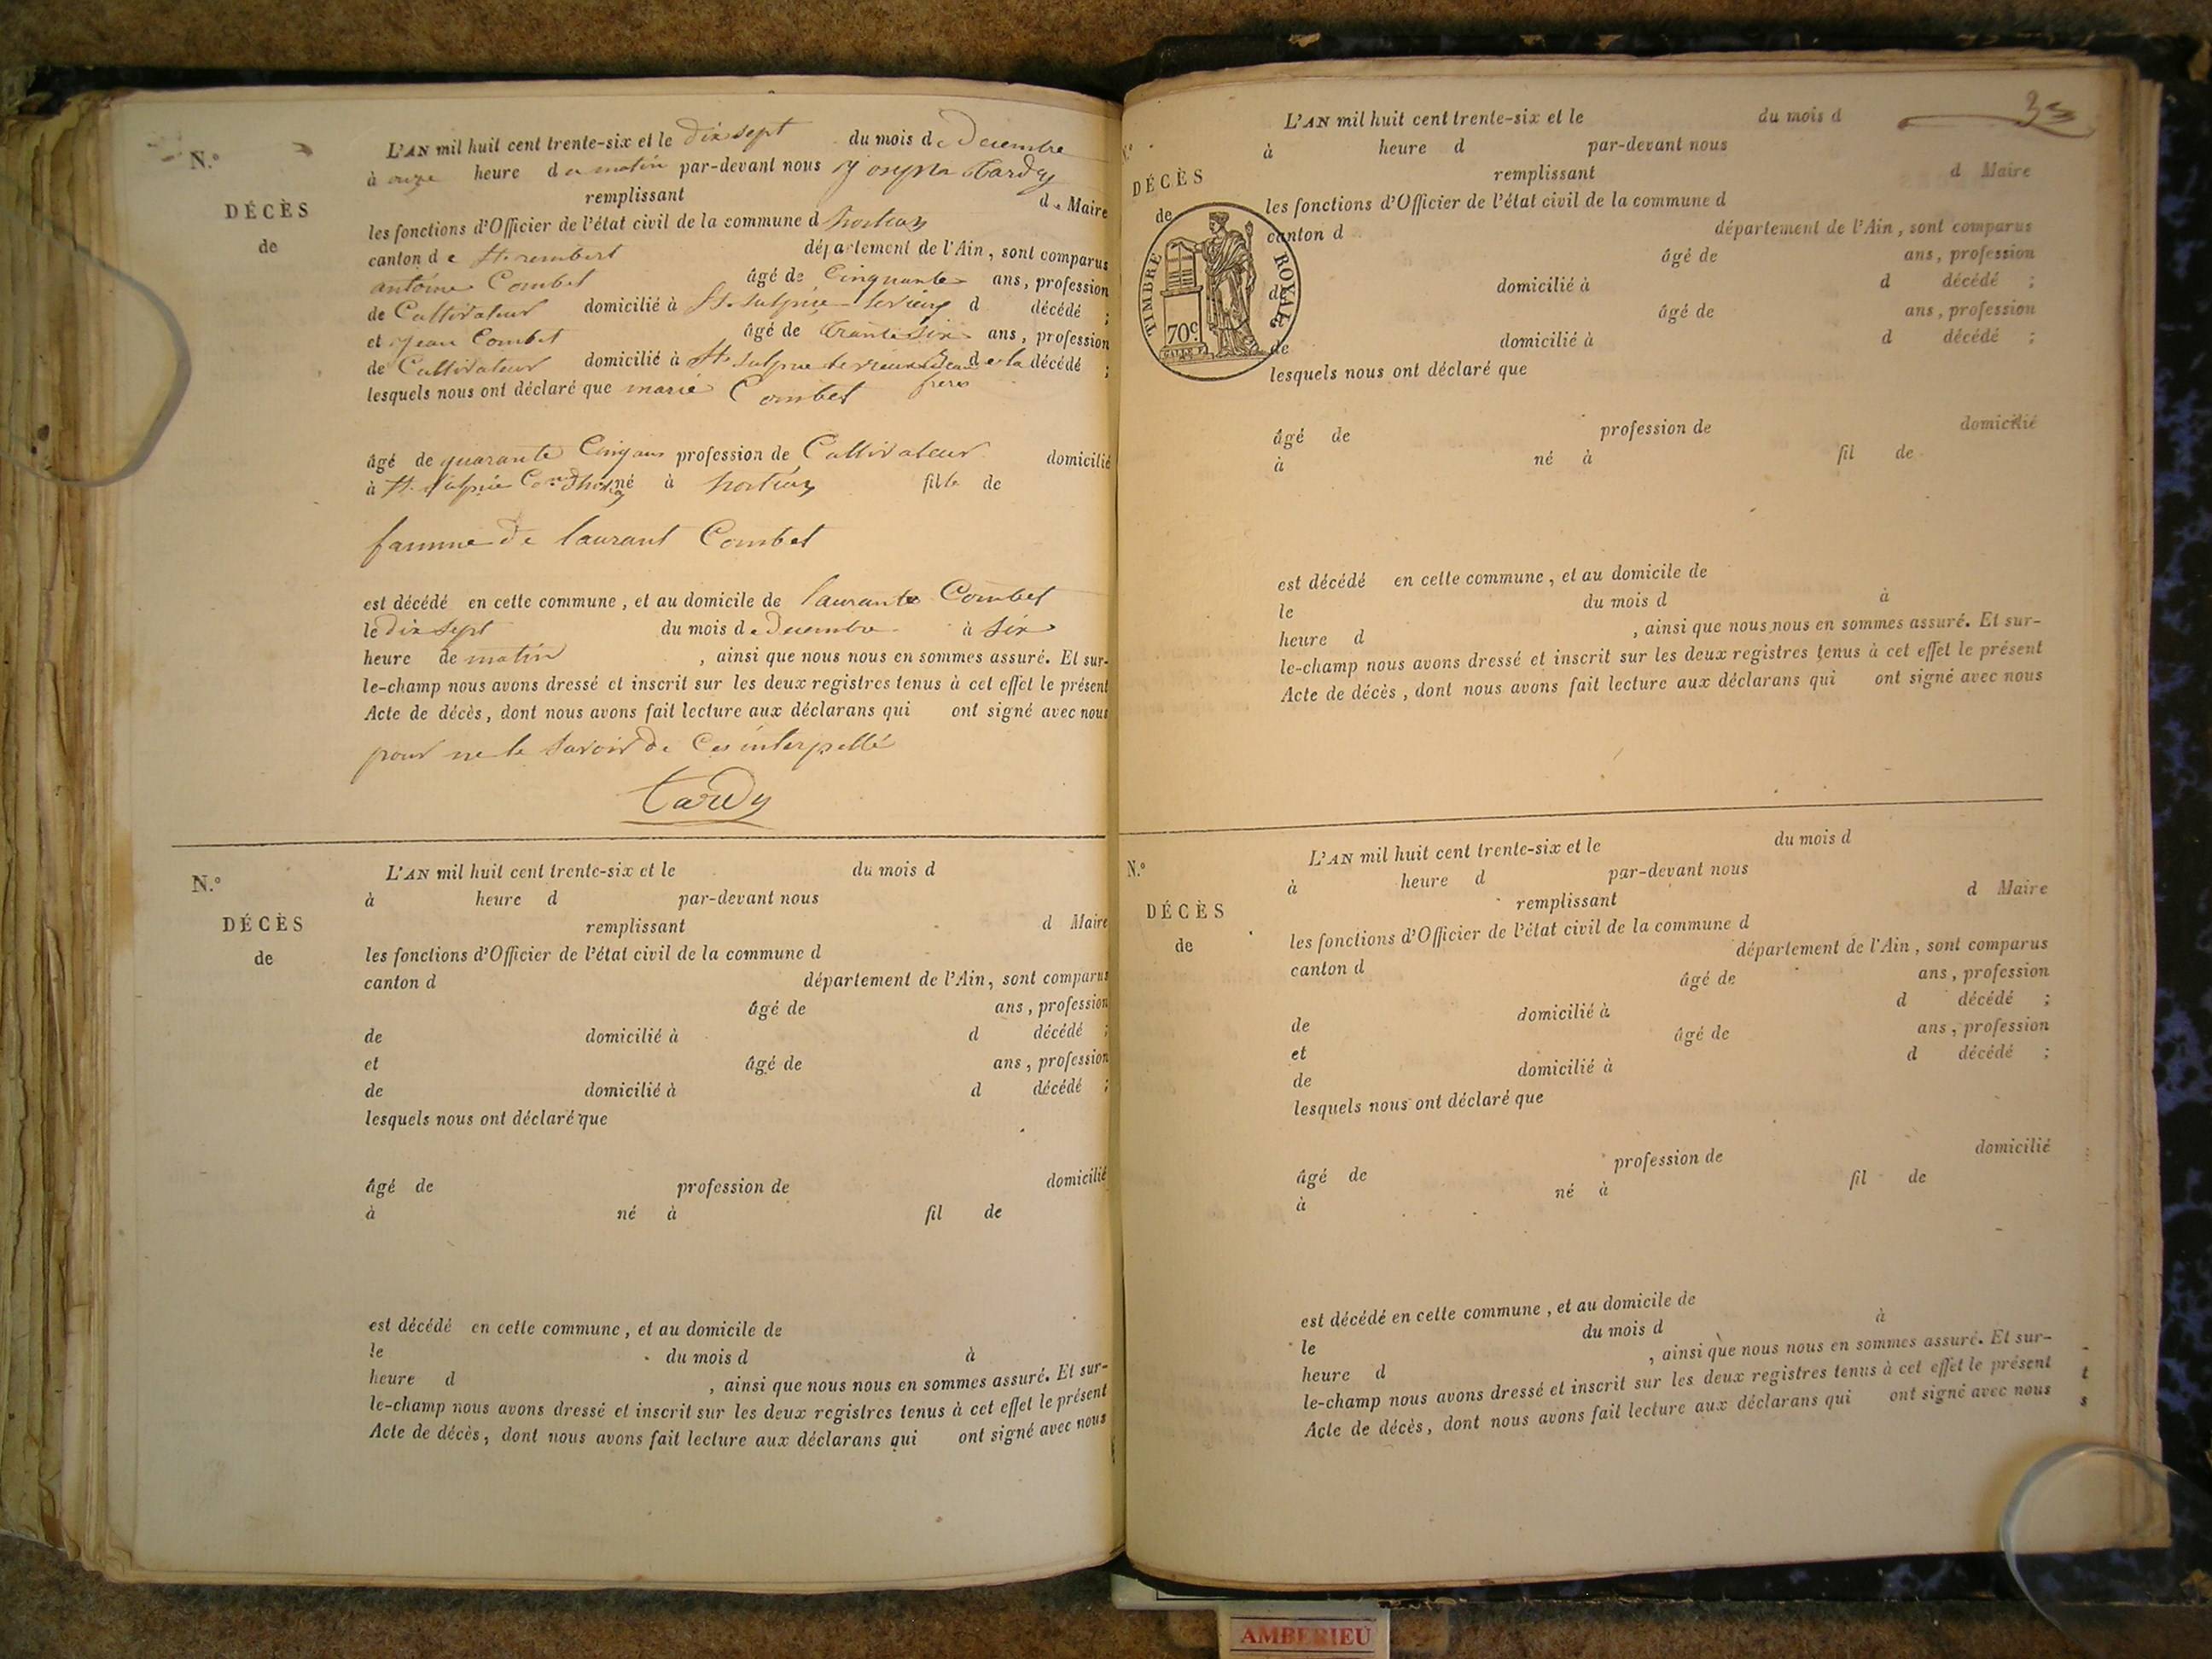 N.°
DÉCÈS
de
L'AN mil huit cent trente-six et le dix sept du mois de Decembre
à onze heure du matin par-devant nous joseph tardy
remplissant de Maire
les fonctions d'Officier de l'état civil de la commune d hostiaz
canton de St. rembert département de l'Ain, sont comparus
antoine Combet âgé de Cinquante ans, profession
de Cultivateur domicilié à St. Sulpice le vieux d décédé ;
et jean Combet âgé de trante six ans, profession
de Cultivateur domicilié à St. Sulpice le vieux de la décédé ;
freres
lesquels nous ont déclaré que marie Combet
âgé de quarante Cinq ans profession de Cultivateur domicilié
à St. Sulpice né à hostiaz fille de
famme de laurant Combet
est décédé en cette commune, et au domicile de laurant Combet
le dix sept du mois de Decembre à six
heure de matin , ainsi que nous nous en sommes assuré. Et sur-
le-champ nous avons dressé et inscrit sur les deux registres tenus à cet effet le présent
Acte de décès, dont nous avons fait lecture aux déclarans qui ont signé avec nous
pour ne le savoir de Ces interpellé
tardy
N.°
DÉCÈS
de
L'AN mil huit cent trente-six et le du mois d
à heure d par-devant nous
remplissant d Maire
les fonctions d'Officier de l'état civil de la commune d
canton d département de l'Ain, sont comparus
âgé de ans, profession
de domicilié à d décédé ;
et âgé de ans, profession
de domicilié à d décédé ;
lesquels nous ont déclaré que
âgé de profession de domicilié
à né à fil de
est décédé en cette commune, et au domicile de
le du mois d à
heure d , ainsi que nous nous en sommes assuré. Et sur-
le-champ nous avons dressé et inscrit sur les deux registres tenus à cet effet le présent
Acte de décès, dont nous avons fait lecture aux déclarans qui ont signé avec nous
N.°
DÉCÈS
de
TIMBRE ROYAL
70c.
L'AN mil huit cent trente-six et le du mois d
à heure d par-devant nous
remplissant d Maire
les fonctions d'Officier de l'état civil de la commune d
canton d département de l'Ain, sont comparus
âgé de ans, profession
de domicilié à d décédé ;
âgé de ans, profession
de domicilié à d décédé ;
lesquels nous ont déclaré que
âgé de profession de domicilié
à né à fil de
est décédé en cette commune, et au domicile de
le du mois d à
heure d , ainsi que nous nous en sommes assuré. Et sur-
le-champ nous avons dressé et inscrit sur les deux registres tenus à cet effet le présent
Acte de décès, dont nous avons fait lecture aux déclarans qui ont signé avec nous
N.°
DÉCÈS
de
L'AN mil huit cent trente-six et le du mois d
à heure d par-devant nous
remplissant d Maire
les fonctions d'Officier de l'état civil de la commune d
canton d département de l'Ain, sont comparus
âgé de ans, profession
de domicilié à d décédé ;
et âgé de ans, profession
de domicilié à d décédé ;
lesquels nous ont déclaré que
âgé de profession de domicilié
à né à fil de
est décédé en cette commune, et au domicile de
le du mois d à
heure d , ainsi que nous nous en sommes assuré. Et sur-
le-champ nous avons dressé et inscrit sur les deux registres tenus à cet effet le présent
Acte de décès, dont nous avons fait lecture aux déclarans qui ont signé avec nous
AMBERIEU